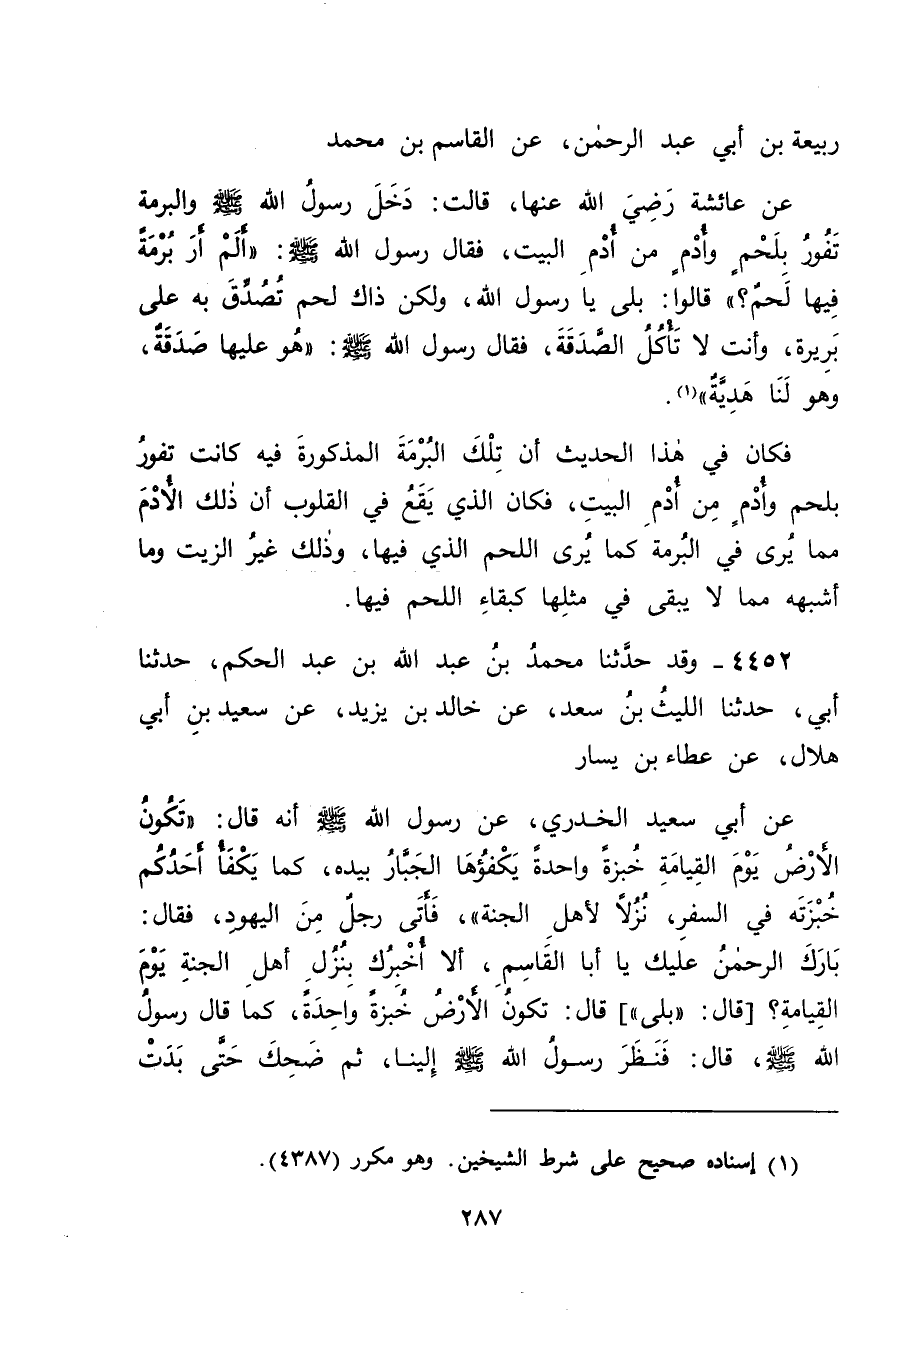 ربيعة بن أبي عبد الرحمٰن، عن القاسم بن محمد
عن عائشة رَضِيَ الله عنها، قالت: دَخَلَ رسولُ الله ﷺ والبرمة
تَفُورُ بِلَحْمٍ وأُدْمٍ من أُدْمِ البيت، فقال رسول الله ﷺ: «أَلَمْ أَرَ بُرْمَةً
فِيها لَحمٌ؟» قالوا: بلى يا رسول الله، ولكن ذاك لحم تُصُدِّقَ به على
بَرِيرة، وأنت لا تَأْكُلُ الصَّدَقَةَ، فقال رسول الله ﷺ: «هُو عليها صَدَقَةٌ،
وهو لَنَا هَدِيَّةٌ»(١).
فكان في هٰذا الحديث أن تِلْكَ البُرْمَةَ المذكورةَ فيه كانت تفورُ
بلحم وأُدْمٍ مِن أُدْمِ البيتِ، فكان الذي يَقَعُ في القلوب أن ذٰلك الأُدْمَ
مما يُرى في البُرمة كما يُرى اللحم الذي فيها، وذٰلك غيرُ الزيت وما
أشبهه مما لا يبقى في مثلِها كبقاءِ اللحم فيها.
٤٤٥٢ ـ وقد حدَّثنا محمدُ بنُ عبد الله بن عبد الحكم، حدثنا
أبي، حدثنا الليثُ بنُ سعد، عن خالد بن يزيد، عن سعيد بنِ أبي
هلال، عن عطاء بن يسار
عن أبي سعيد الخدري، عن رسول الله ﷺ أنه قال: «تَكُونُ
الأَرْضُ يَوْمَ القِيامَةِ خُبزةً واحدةً يَكْفُؤُهَا الجَبَّارُ بيده، كما يَكْفَأُ أَحَدُكُم
خُبْزَتَه في السفرِ، نُزُلاً لأهلِ الجنة»، فَأَتَى رجلٌ مِنَ اليهودِ، فقال:
بَارَكَ الرحمٰنُ عليك يا أبا القَاسِمِ، ألا أُخْبِرُك بِنُزُلِ أهلِ الجنةِ يَوْمَ
القِيامة؟ [قال: «بلى»] قال: تكونُ الأَرْضُ خُبزةً واحِدَةً، كما قال رسولُ
الله ﷺ، قال: فَنَظَرَ رسولُ الله ﷺ إلينا، ثم ضَحِكَ حَتَّى بَدَتْ
(١) إسناده صحيح على شرط الشيخين. وهو مكرر (٤٣٨٧).
٢٨٧